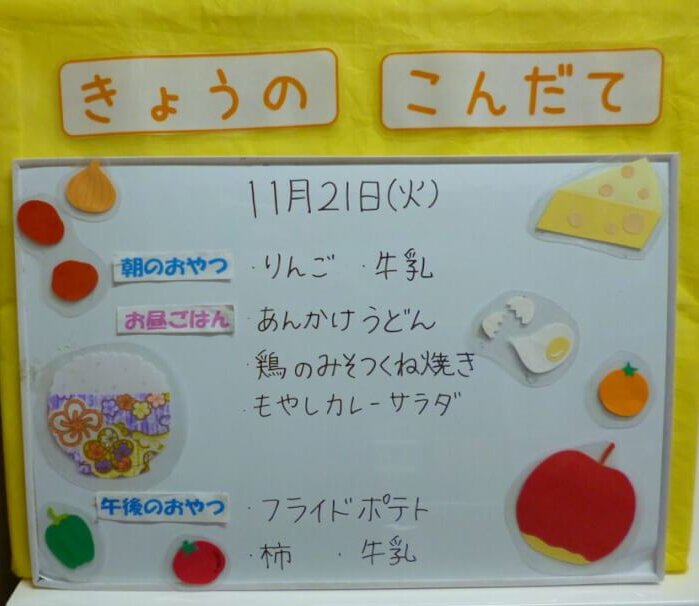 きょうの こんだて
11月21日(火)
朝のおやつ ・りんご ・牛乳
お昼ごはん ・あんかけうどん
・鶏のみそつくね焼き
・もやしカレーサラダ
午後のおやつ ・フライドポテト
・柿 ・牛乳